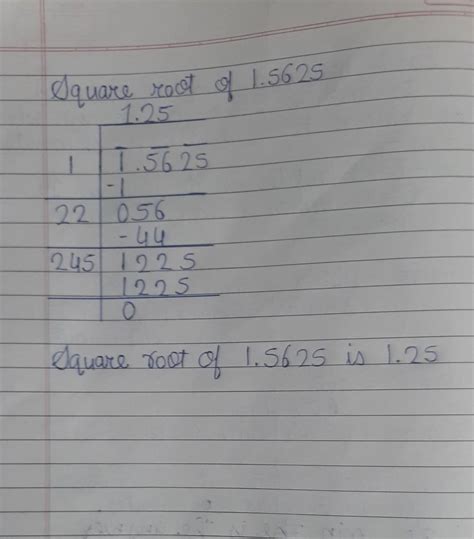 Square root of 1.5625
1.25
1 1.5625
-1
22 056
-44
245 1225
1225
0
Square root of 1.5625 is 1.25